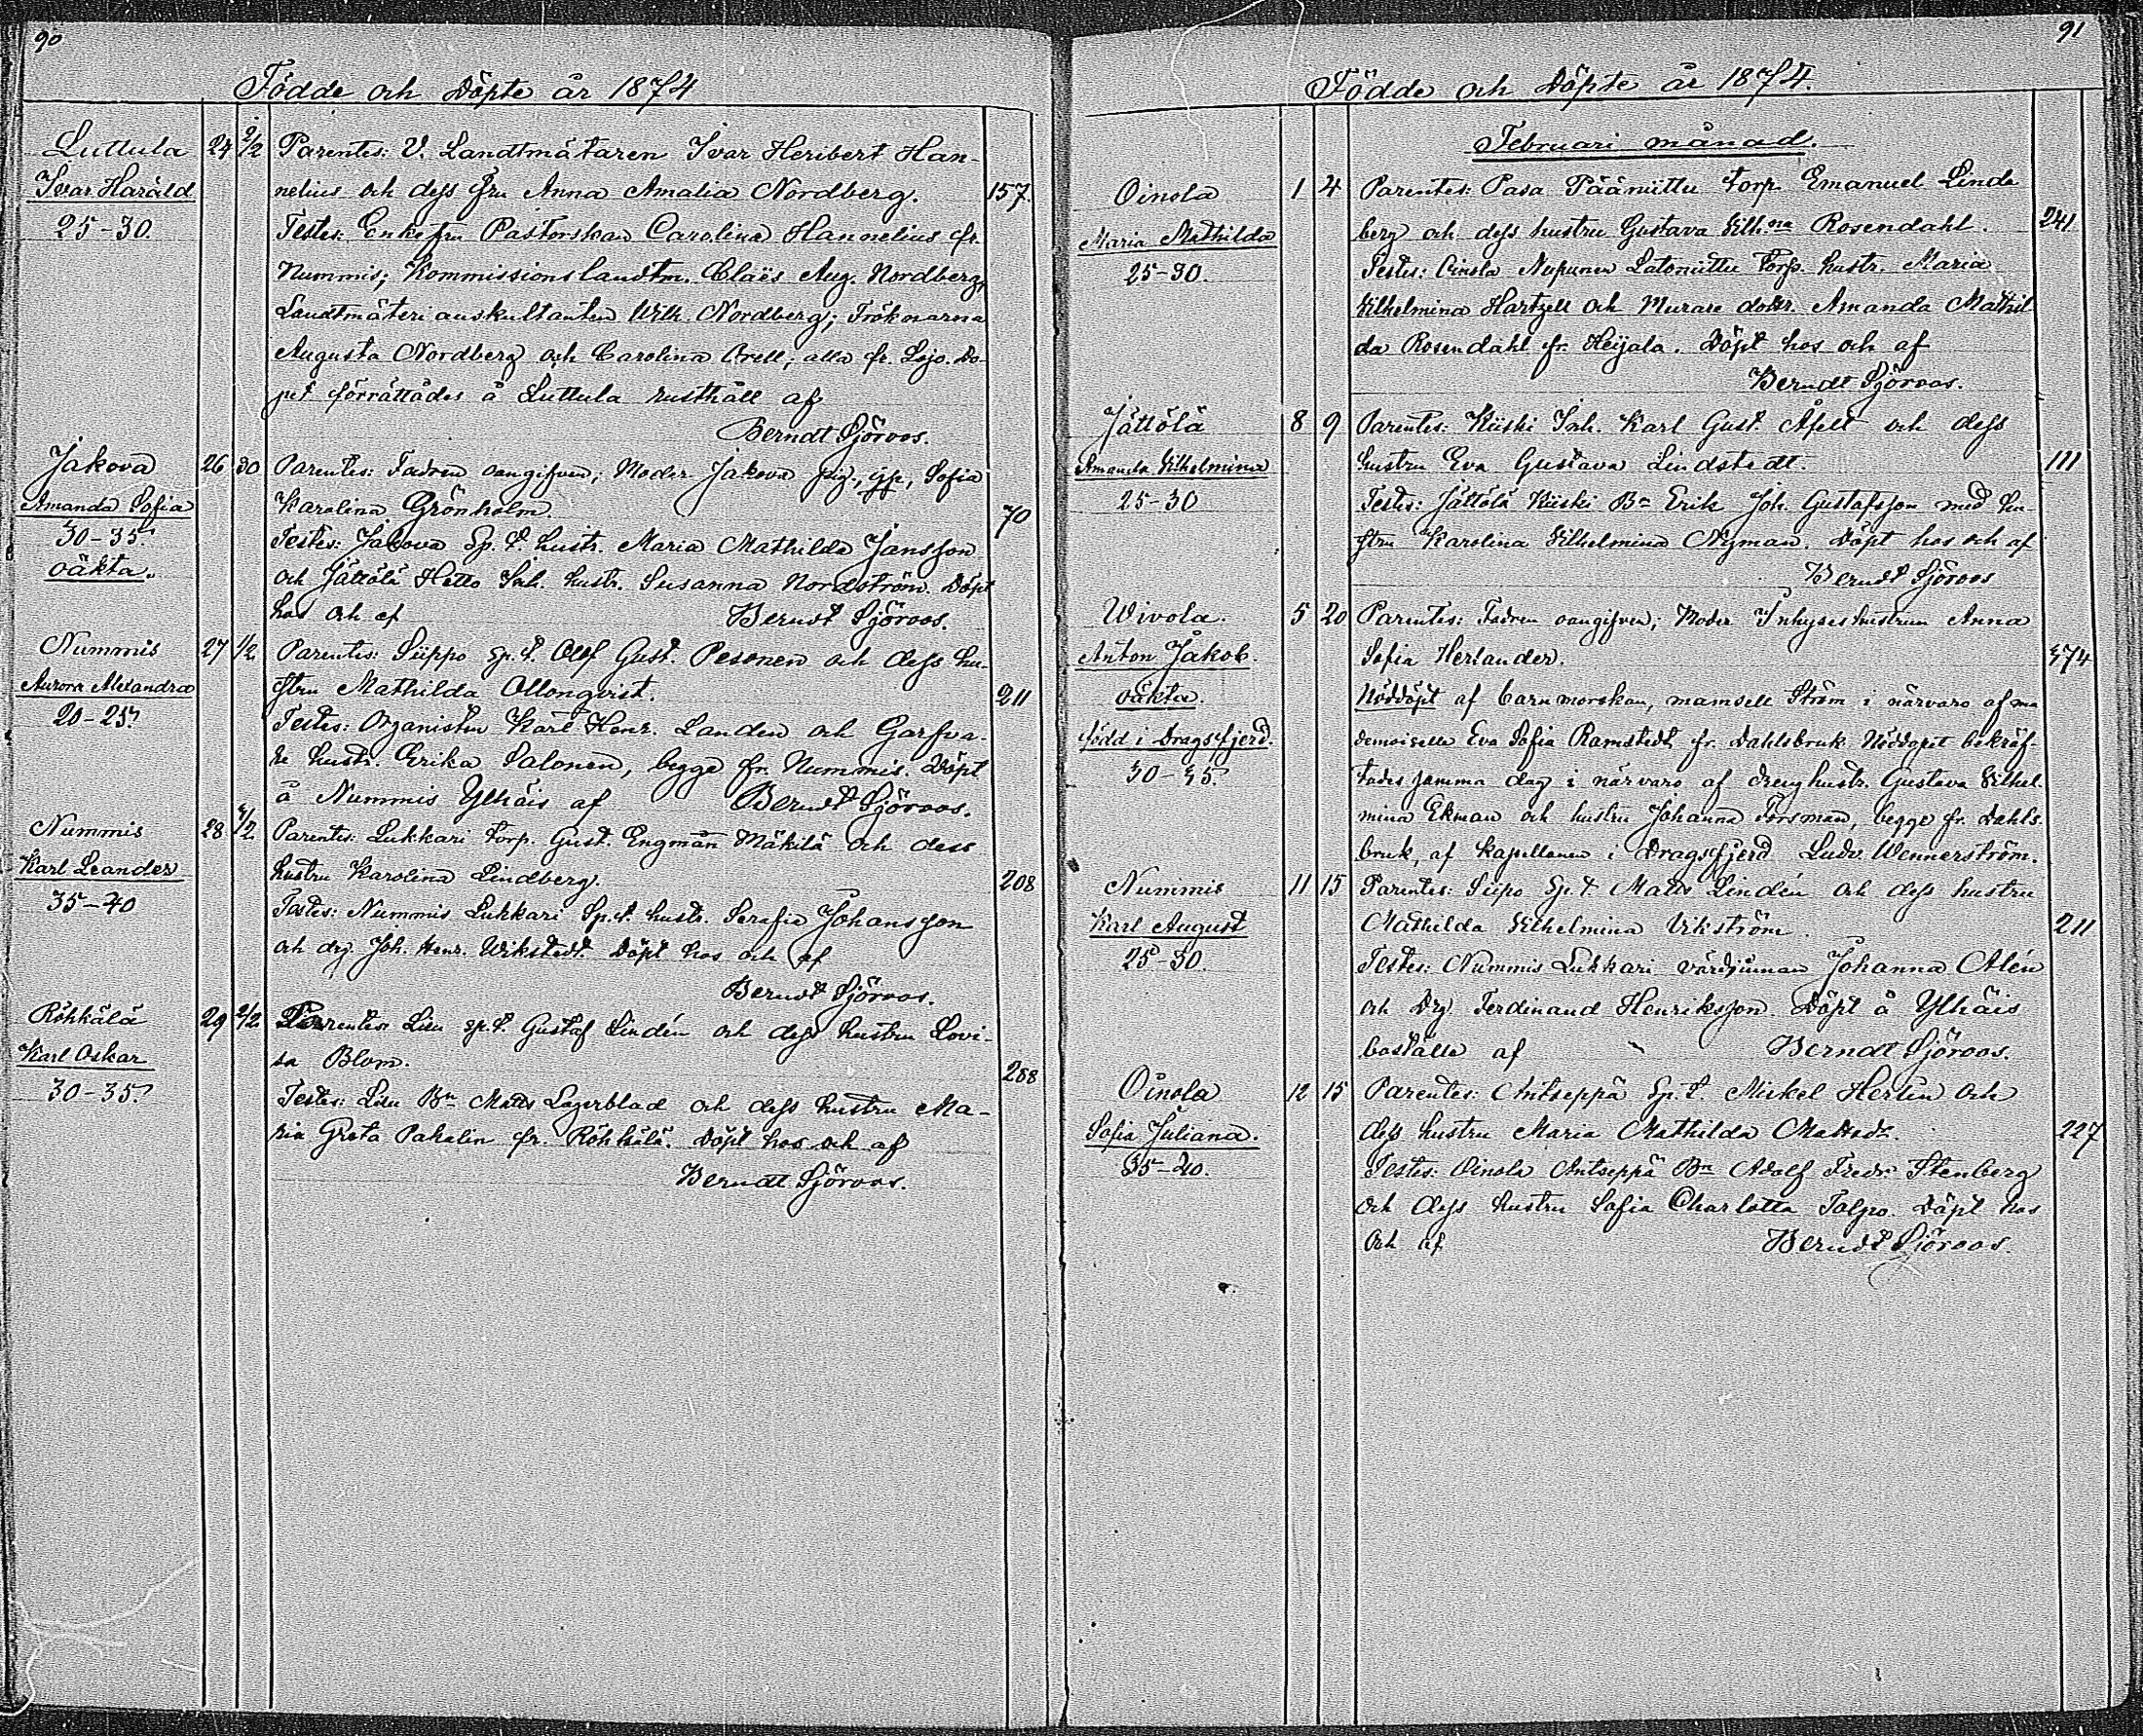 90
Födde och Döpte år 1874
Luttula 24 9/2 Parentes: V. Landtmätaren Ivar Heribert Han-
Ivar Harald nelius och dess fru Anna Amalia Nordberg. 157.
25-30. Testes: Enkefru Pastorskan Carolina Hannelius fr.
Nummis; Kommissionslandtm. Claës Aug. Nordberg,
Landtmäteri auskultanten Wilh. Nordberg; Fröknarna
Augusta Nordberg och Carolina Orell; alla fr. Lojo. Do-
pet förrättades å Luttula rusthåll af
Berndt Sjöroos.
Jakova 26 30 Parentes: Fadren oangifven; Moder Jakova pig., Sofia
Amanda Sofia Karolina Grönholm. 70
30-35. Testes: Jakova Sp. t. hustr. Maria Mathilda Jansson
oäkta. och Jättölä Hetto Inh. hustr. Susanna Nordström. Döpt
hos och af Berndt Sjöroos.
Nummis 27 1/2 Parentes: Siippo Sp. t. Olof Gust. Pesonen och dess hu-
Aurora Alexandra stru Mathilda Ollonqvist. 211
20-25. Testes: Organisten Karl Henr. Landen och Garfva-
re hustr. Erika Salonen, begge fr. Nummis. Döpt
å Nummis Ylhäis af Berndt Sjöroos.
Nummis 28 4/2 Parentes: Lukkari torp. Gust. Engman Mäkilä och dess
Karl Leander hustru Karolina Lindberg. 208
35-40 Testes: Nummis Lukkari Sp. t. hustr. Serafia Johansson
och drg. Joh. Henr. Wikstedt. Döpt hos och af
Berndt Sjöroos.
Röhkälä 29 2/2 Parentes: Lisu sp. t. Gustaf Lindén och dess hustru Lovi-
Karl Oskar sa Blom. 268
30-35. Testes: Lisu Bn Matts Lagerblad och dess hustru Ma-
ria Greta Pahalin fr. Röhkälä. Döpt hos och af
Berndt Sjöroos.
91
Födde och Döpte år 1874.
Februari månad.
Oinola 1 4 Parentes: Pasa Pääniittu torp. Emanuel Linde
Maria Mathilda berg och dess hustru Gustava Vilhna Rosendahl. 241
25-30. Testes: Oinola Nupunen Latoniittu torp. hustr. Maria
Vilhelmina Hartzell och Murare dotter. Amanda Mathil
da Rosendahl fr. Heijala. Döpt hos och af
Berndt Sjöroos.
Jättölä 8 9 Parentes: Kiiski Inh. Karl Gust. Åfelt och dess
Amanda Vilhelmina hustru Eva Gustava Lindstedt. 111
25-30 Testes: Jättölä Kiiski Bn Erik Joh. Gustafsson med hu-
stru Karolina Vilhelmina Nyman. Döpt hos och af
Berndt Sjöroos
Wivola. 5 20 Parentes: Fadren oangifven; Moder Inhyseshustrun Anna
Anton Jakob. Sofia Herlander. 374
oäkta. Nöddöpt af barnmorskan, mamsell Ström i närvaro af ma
född i Dragsfjerd. demoiselle Eva Sofia Ramstedt fr. Dahlsbruk. Nöddopet bekräf-
30-35. tades samma dag i närvaro af drenghustr. Gustava Vilhel-
mina Ekman och hustru Johanna Forsman, begge fr. Dahls-
bruk, af kapellanen i Dragsfjerd Ludv. Wennerström.
Nummis 11 15 Parentes: Siipo Sp. t. Matts Lindén och dess hustru
Karl August Mathilda Vilhelmina Vikström. 211
25-30. Testes: Nummis Lukkari värdjinnan Johanna Alén
och Drg. Ferdinand Henriksson. Döpt å Ylhäis
boställe af Berndt Sjöroos.
Oinola 12 15 Parentes: Antseppä Sp. t. Mickel Herlin och
Sofia Juliana. dess hustru Maria Mathilda Mattsdr. 227
35-40. Testes: Oinola Antseppä Bn Adolf Fredr. Stenberg
och dess hustru Sofia Charlotta Talpo. Döpt hos
och af Berndt Sjöroos.